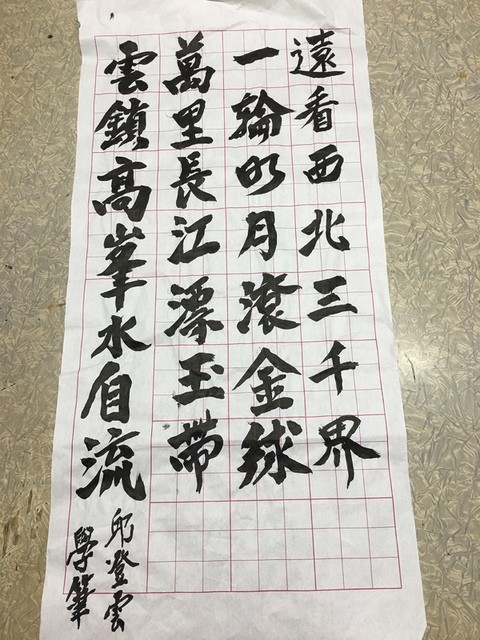 遠看西北三千界
一輪明月滾金球
萬里長江漂玉帶
雲鎖高峯水自流
邱登雲
學筆